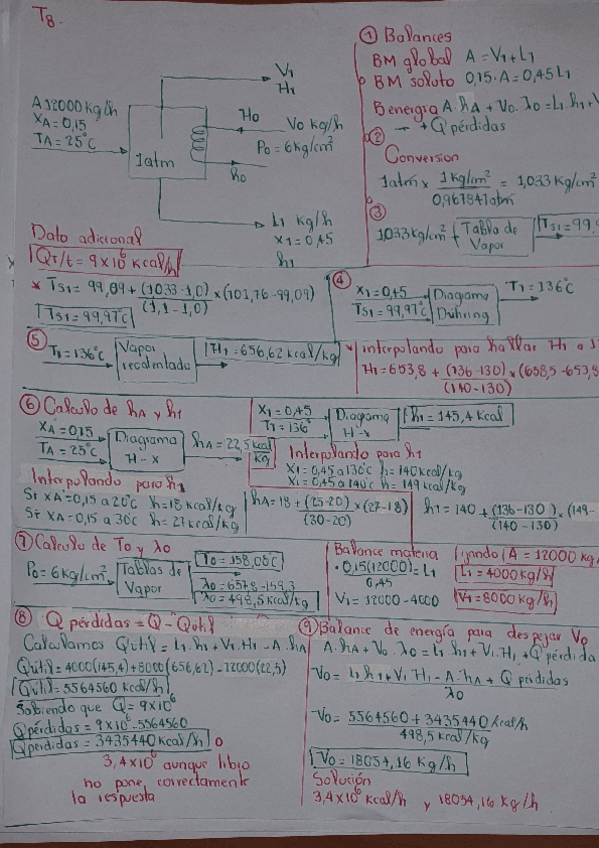 T8.
A 12000 kg/h
XA = 0,15
TA = 25°C
1atm
V1
H1
H0
V0 kg/h
P0 = 6 kg/cm²
h0
L1 kg/h
X1 = 0,45
h1
Dato adicional
QT/t = 9x10⁶ kcal/h
① Balances
BM global A = V1 + L1
BM soluto 0,15·A = 0,45 L1
Benergia A·hA + V0·λ0 = L1·h1 + V
+ Q pérdidas
②
Conversion
1atm x 1 kg/cm² / 0,967841atm = 1,033 kg/cm²
③
1,033 kg/cm² Tabla de Vapor TS1 = 99,9
* TS1 = 99,09 + (1033-1,0)/(1,1-1,0) x (101,76 - 99,09)
TS1 = 99,97°C
④
X1 = 0,45
TS1 = 99,97°C
Diagama Dühring
T1 = 136°C
⑤
T1 = 136°C Vapor recalentado H1 = 656,62 kcal/kg
* interpolando para hallar H1 a 1
H1 = 653,8 + (136-130)/(140-130) x (658,5 - 653,8
⑥ Calculo de hA y h1
XA = 0,15
TA = 25°C
Diagrama H-x
hA = 22,5 kcal/kg
X1 = 0,45
T1 = 136°
Diagrama H-x
h1 = 145,4 kcal
Interpolando para h1
X1 = 0,45 a 130°C h = 140 kcal/kg
X1 = 0,45 a 140°C h = 149 kcal/kg
Interpolando para h1
Si XA = 0,15 a 20°C h = 18 kcal/kg
Si XA = 0,15 a 30°C h = 27 kcal/kg
hA = 18 + (25-20)/(30-20) x (27-18)
h1 = 140 + (136-130)/(140-130) x (149-
⑦ Calculo de T0 y λ0
P0 = 6 kg/cm² Tablas de Vapor
T0 = 158,08°C
λ0 = 657,8 - 159,3
λ0 = 498,5 kcal/kg
Balance materia
· 0,15(12000)/0,45 = L1
V1 = 12000 - 4000
fijando A = 12000 kg
L1 = 4000 kg/h
V1 = 8000 kg/h
⑧ Q pérdidas = Q - Qútil
Calculamos Qútil = L1·h1 + V1·H1 - A·hA
Qútil = 4000(145,4) + 8000(656,62) - 12000(22,5)
Qútil = 5564560 kcal/h
Sabiendo que Q = 9x10⁶
Qpérdidas = 9x10⁶ - 5564560
Qpérdidas = 3435440 kcal/h o
3,4x10⁶ aunque libro
no pone correctamente
la respuesta
⑨ Balance de energía para despejar V0
A·hA + V0·λ0 = L1·h1 + V1·H1 + Q pérdida
V0 = L1·h1 + V1·H1 - A·hA + Q pérdidas / λ0
V0 = 5564560 + 3435440 kcal/h / 498,5 kcal/kg
V0 = 18054,16 kg/h
Solución
3,4x10⁶ kcal/h y 18054,16 kg/h